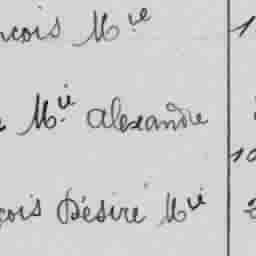 ncois M.ie 1
M.ie Alexandre
10
çois Désiré M.ie 2